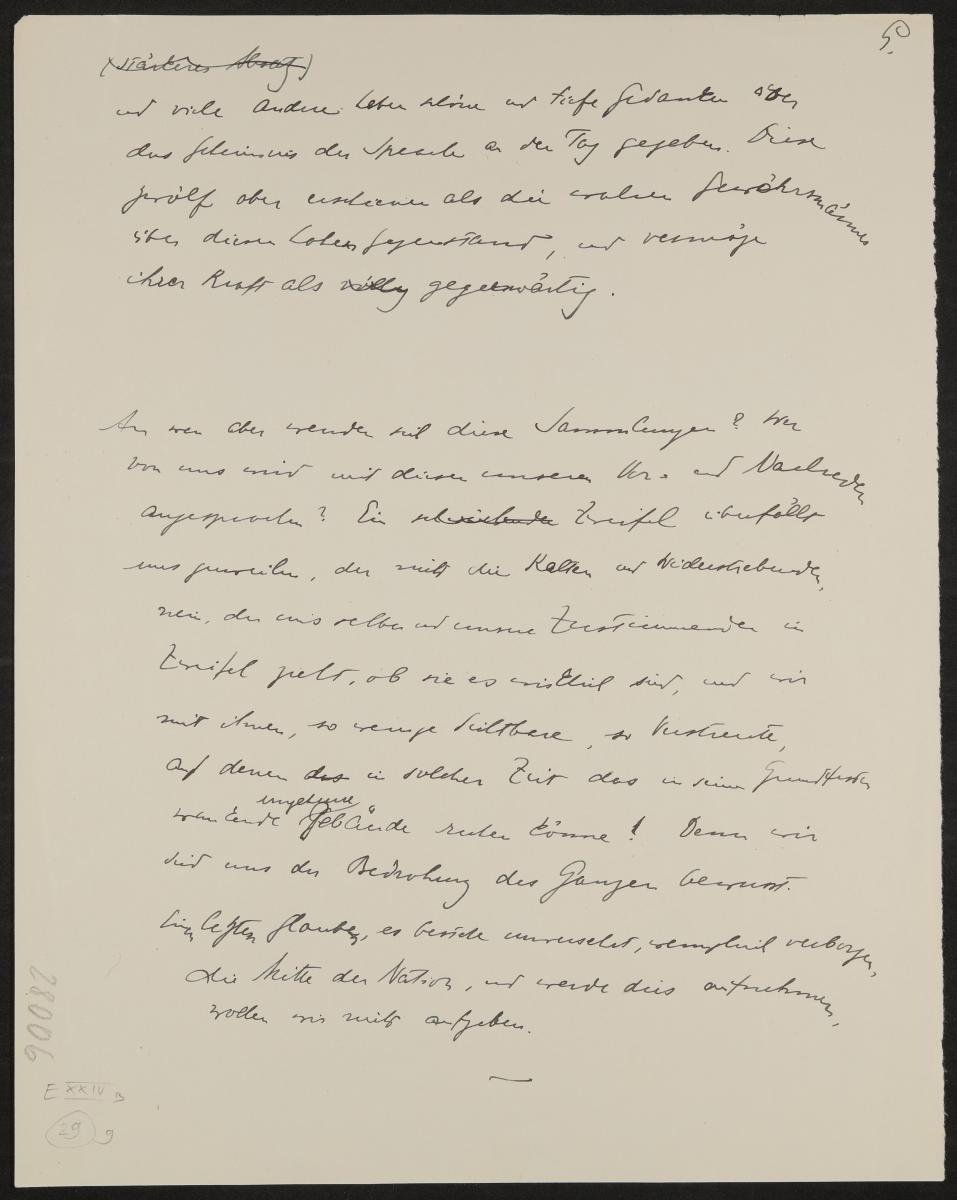 5.
(stärkerer Absatz)
und viele andere haben schöne und tiefe Gedanken über
das Geheimnis der Sprache an den Tag gegeben. Diese
zwölf aber erschienen als die wahren Gewährsmänner
über diesen hohen Gegenstand, und vermöge
ihrer Kraft als völlig gegenwärtig.
An wen aber wenden sich diese Sammlungen? Wer
von uns wird mit diesen unseren Vor- und Nachreden
angesprochen? Ein Zweifel überfällt
uns zuweilen, der nicht die Kalten und Widerstrebenden,
nein, der uns selber und unsere Zustimmenden in
Zweifel zieht, ob sie es wirklich sind, und wir
mit ihnen, so wenige Sichtbare, so Verstreute,
auf denen das in solcher Zeit das in seinen Grundfesten
ungeheure
wankende Gebäude ruhen könne! Denn wir
sind uns der Bedrohung des Ganzen bewusst.
Einen letzten Glauben, es bestehe unversehrt, wenngleich verborgen,
die Mitte der Nation, und werde dies aufnehmen,
wollen wir nicht aufgeben.
28006
E XXIV B
29 9